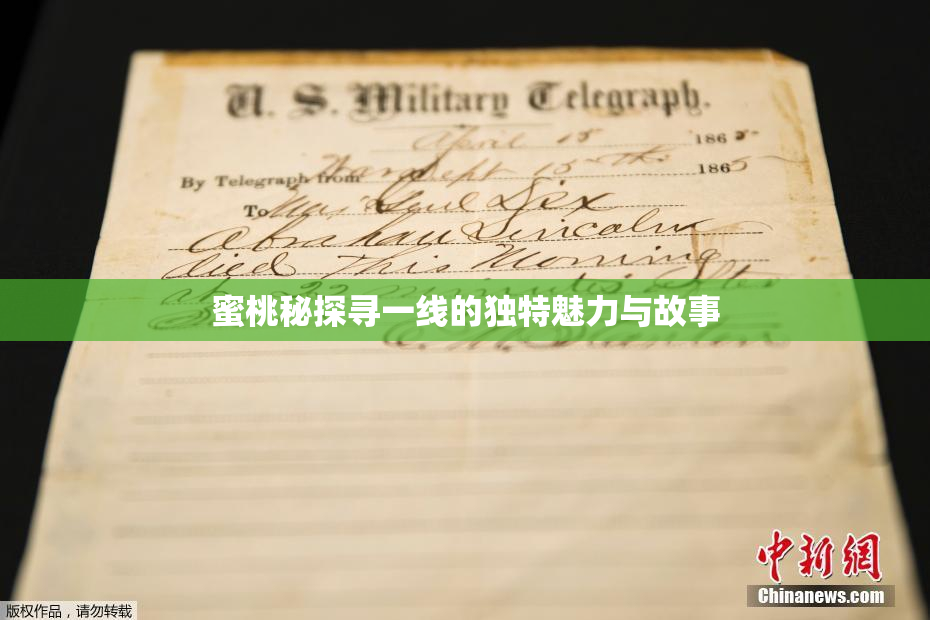 U. S. Military Telegraph.
April 15 1865
By Telegraph from War Dept 15th 1865
To Maj Genl Dix
Abraham Lincoln
died This Morning
at 22 minutes after
蜜桃秘探寻一线的独特魅力与故事
E. M. Stanton
中新網
Chinanews.com
版权作品，请勿转载